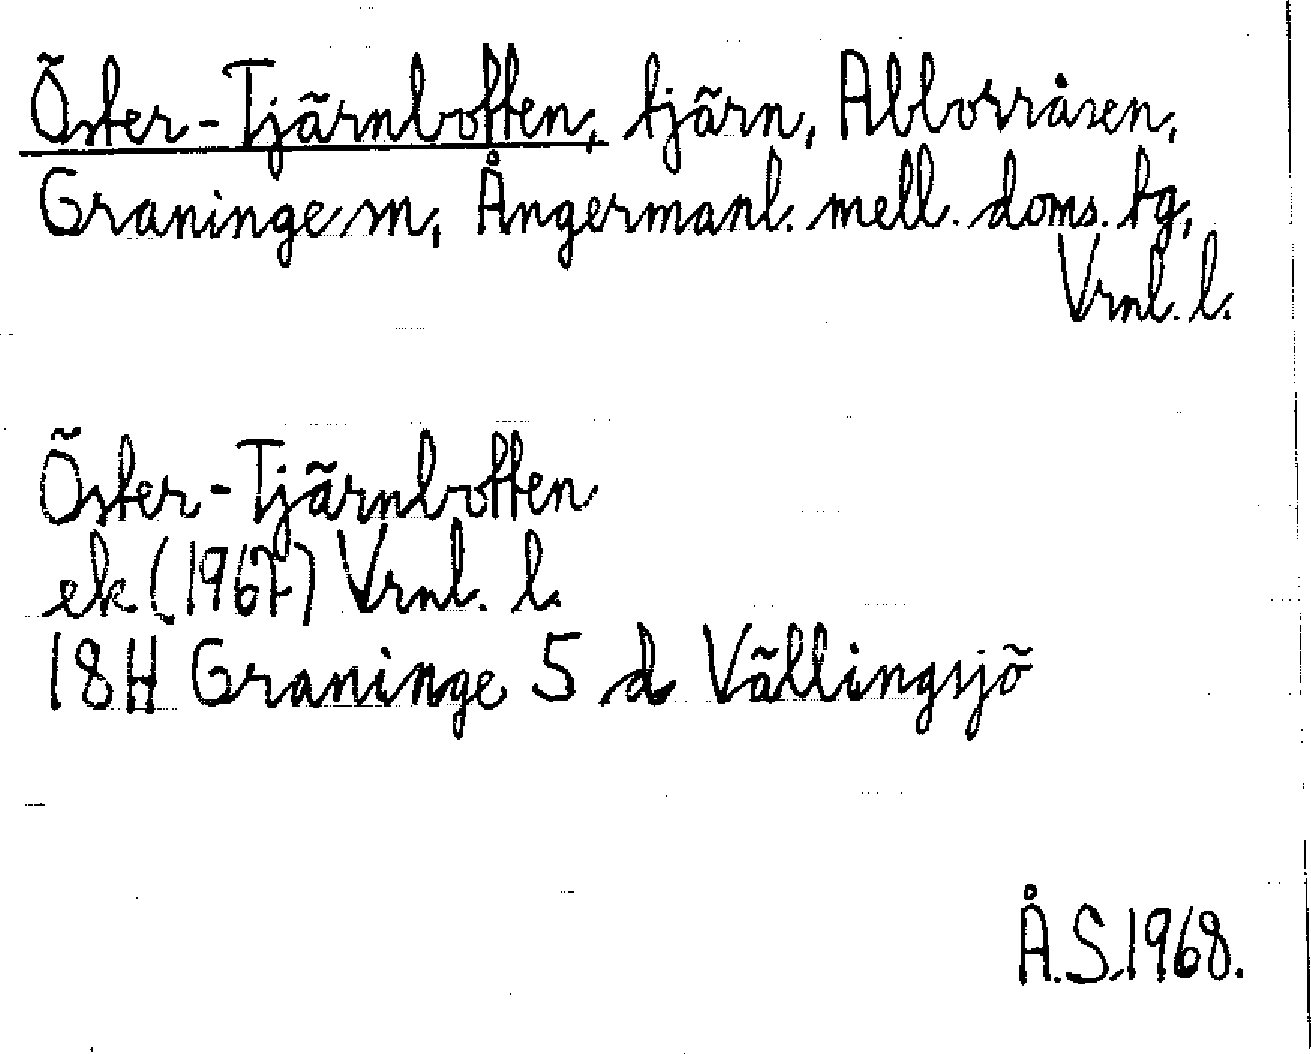 Öster-Tjärnbotten, tjärn, Abborråsen,
Graninge sn, Ångermanl. mell. doms. tg,
Vrnl. l.
Öster-Tjärnbotten
ek (1967) Vrnl. l.
18H Graninge 5 d Vällingsjö
Å.S. 1968.